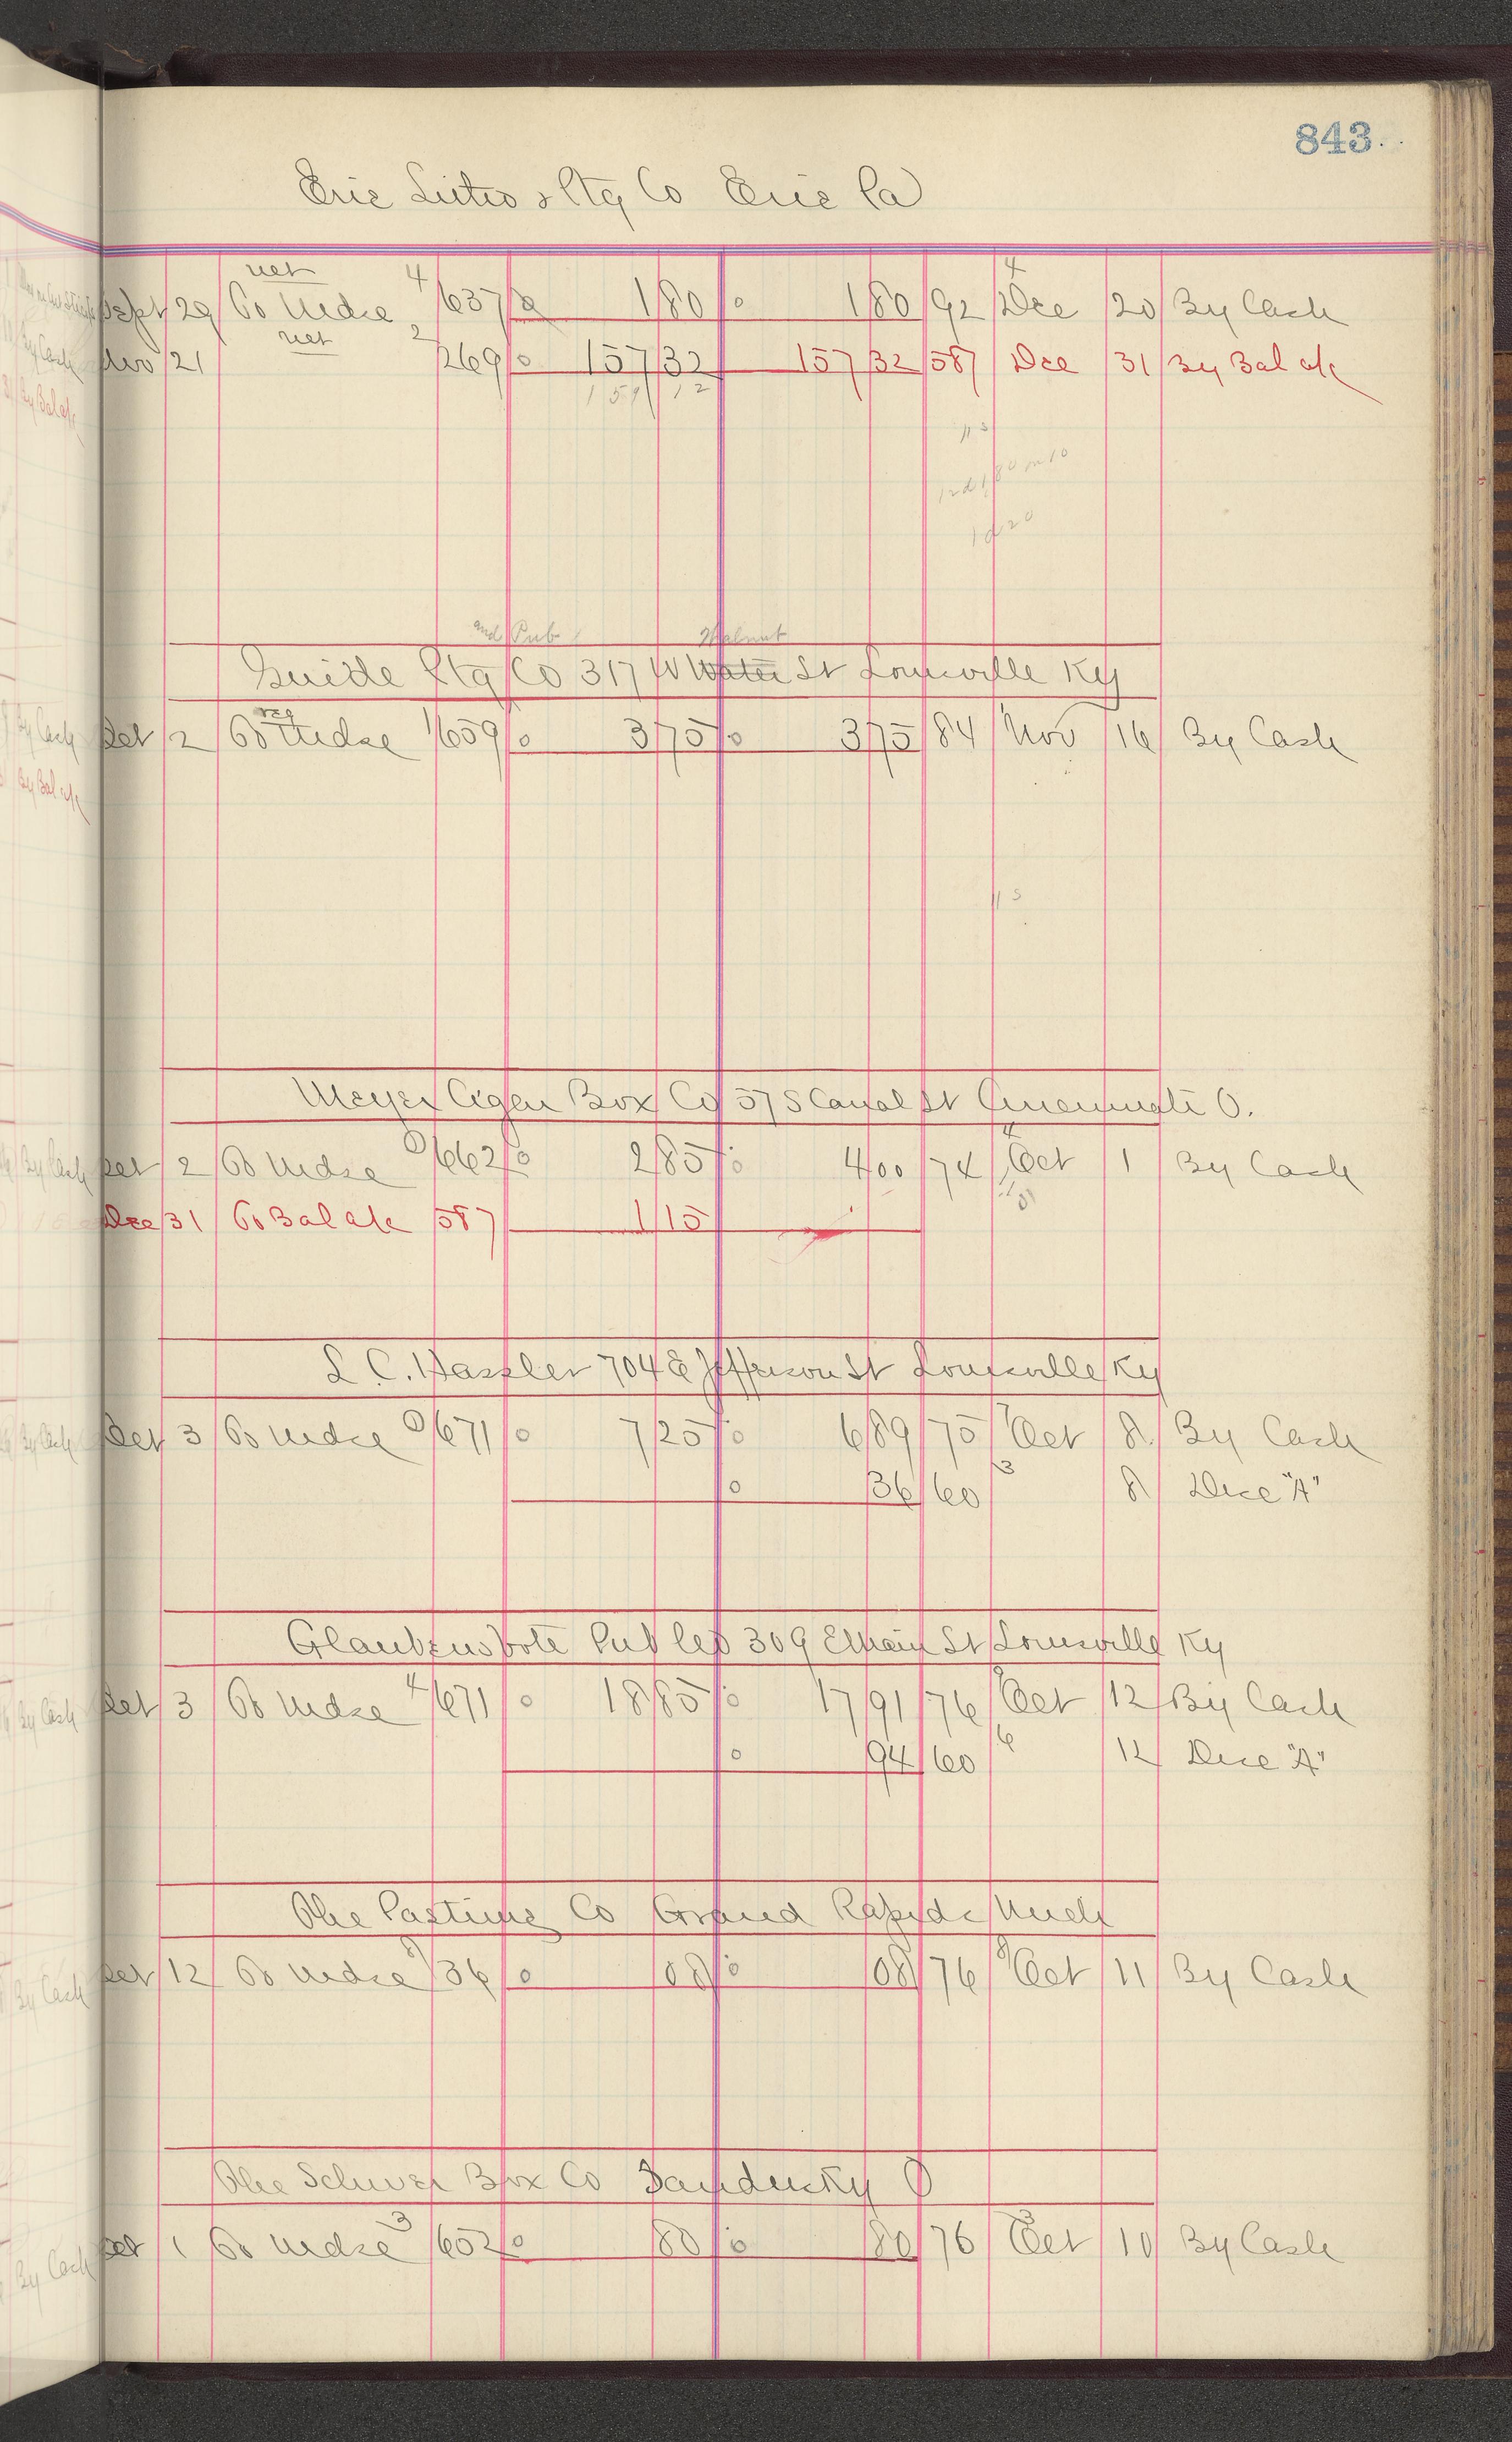 843
Erie Litho & Ptg Co Erie Pa
net 4 4
Sept 29 To Mdse 637 1 80 1 80 92 Dec 20 By Cash
net 2
Nov 21 269 157 32 157 32 587 Dec 31 By Bal a/c
159 12
and Pub Walnut
Guide Ptg Co 317 W Water St Louisville Ky
Oct 2 To Mdse 659 3 75 3 75 84 Nov 16 By Cash
Meyer Cigar Box Co 57 S Canal St Cincinnati O.
Oct 2 To Mdse 0 662 2 85 4 00 74 4 Oct 1 By Cash
Dec 31 To Bal a/c 587 1 15
L C. Hassler 704 E Jefferson St Louisville Ky
Oct 3 To Mdse 0 671 7 25 6 89 75 7 Oct 8 By Cash
36 60 3 8 Disc "A"
Glaubensbote Pub 309 E Main St Louisville Ky
Oct 3 To Mdse 4 671 18 85 17 91 76 Oct 12 By Cash
94 60 6 12 Disc "A"
The Pastime Co Grand Rapids Mich
Oct 12 To Mdse 36 08 08 76 Oct 11 By Cash
The Box Co Sandusky O
Oct 1 To Mdse 3 652 80 80 76 3 Oct 10 By Cash